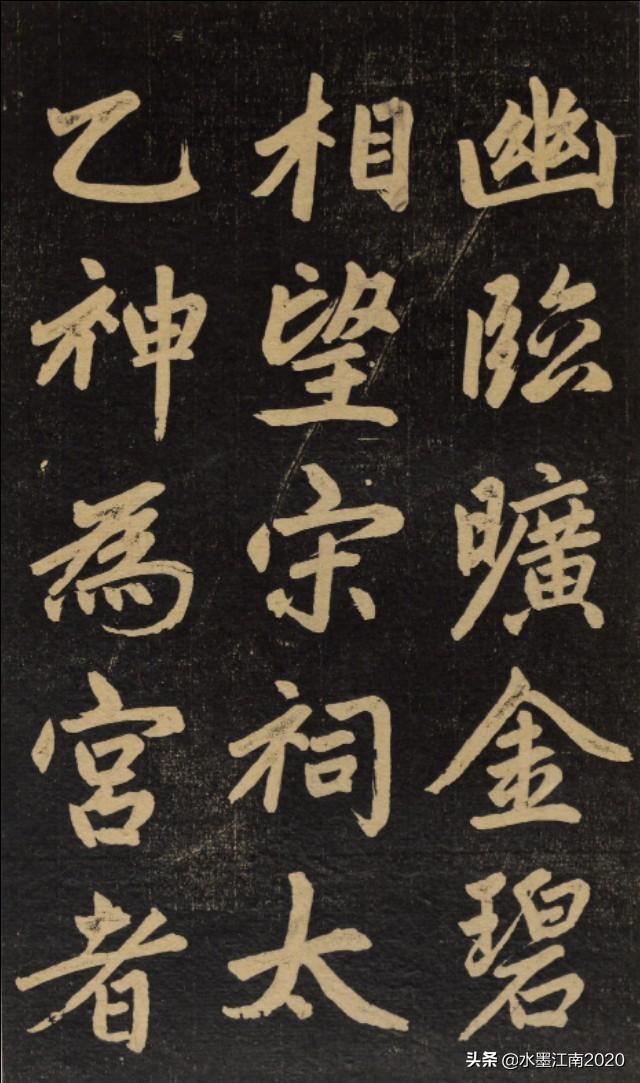 幽臨曠金碧
相望宋祠太
乙神為宮者
头条 @水墨江南2020